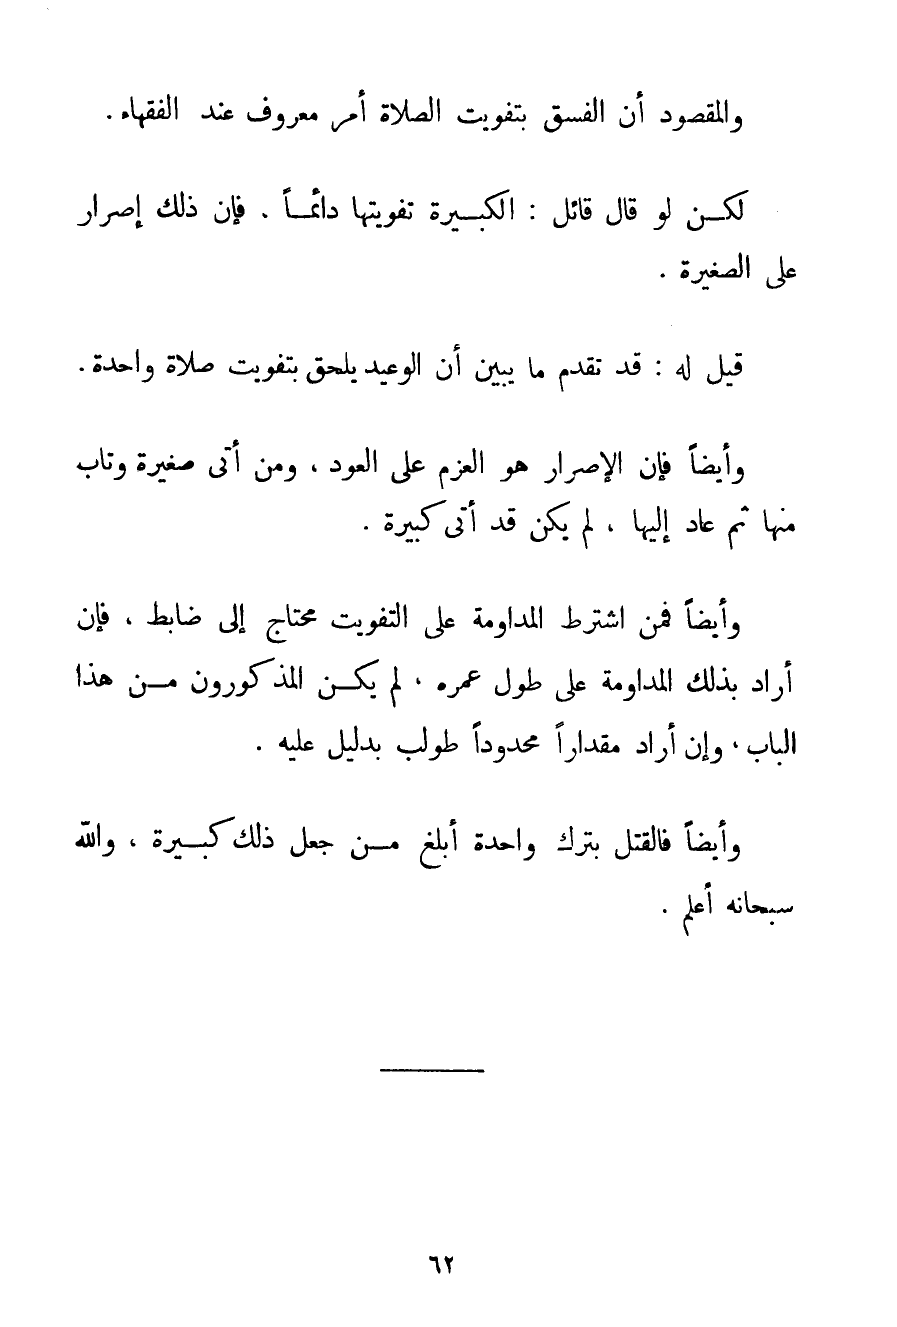 والمقصود أن الفسق بتفويت الصلاة أمر معروف عند الفقهاء .
لكن لو قال قائل : الكبيرة تفويتها دائماً . فإن ذلك إصرار
على الصغيرة .
قيل له : قد تقدم ما يبين أن الوعيد يلحق بتفويت صلاة واحدة .
وأيضاً فإن الإصرار هو العزم على العود ، ومن أتى صغيرة وتاب
منها ثم عاد إليها ، لم يكن قد أتى كبيرة .
وأيضاً فمن اشترط المداومة على التفويت محتاج إلى ضابط ، فإن
أراد بذلك المداومة على طول عمره ، لم يكن المذكورون من هذا
الباب ، وإن أراد مقداراً محدوداً طولب بدليل عليه .
وأيضاً فالقتل بترك واحدة أبلغ من جعل ذلك كبيرة ، والله
سبحانه أعلم .
٦٢